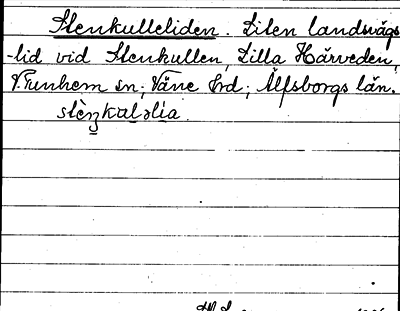 Stenkulleliden. Liten landsvägs
-lid vid Stenkullen, Lilla Härveden,
V. Tunhem sn; Väne hrd; Älfsborgs län.